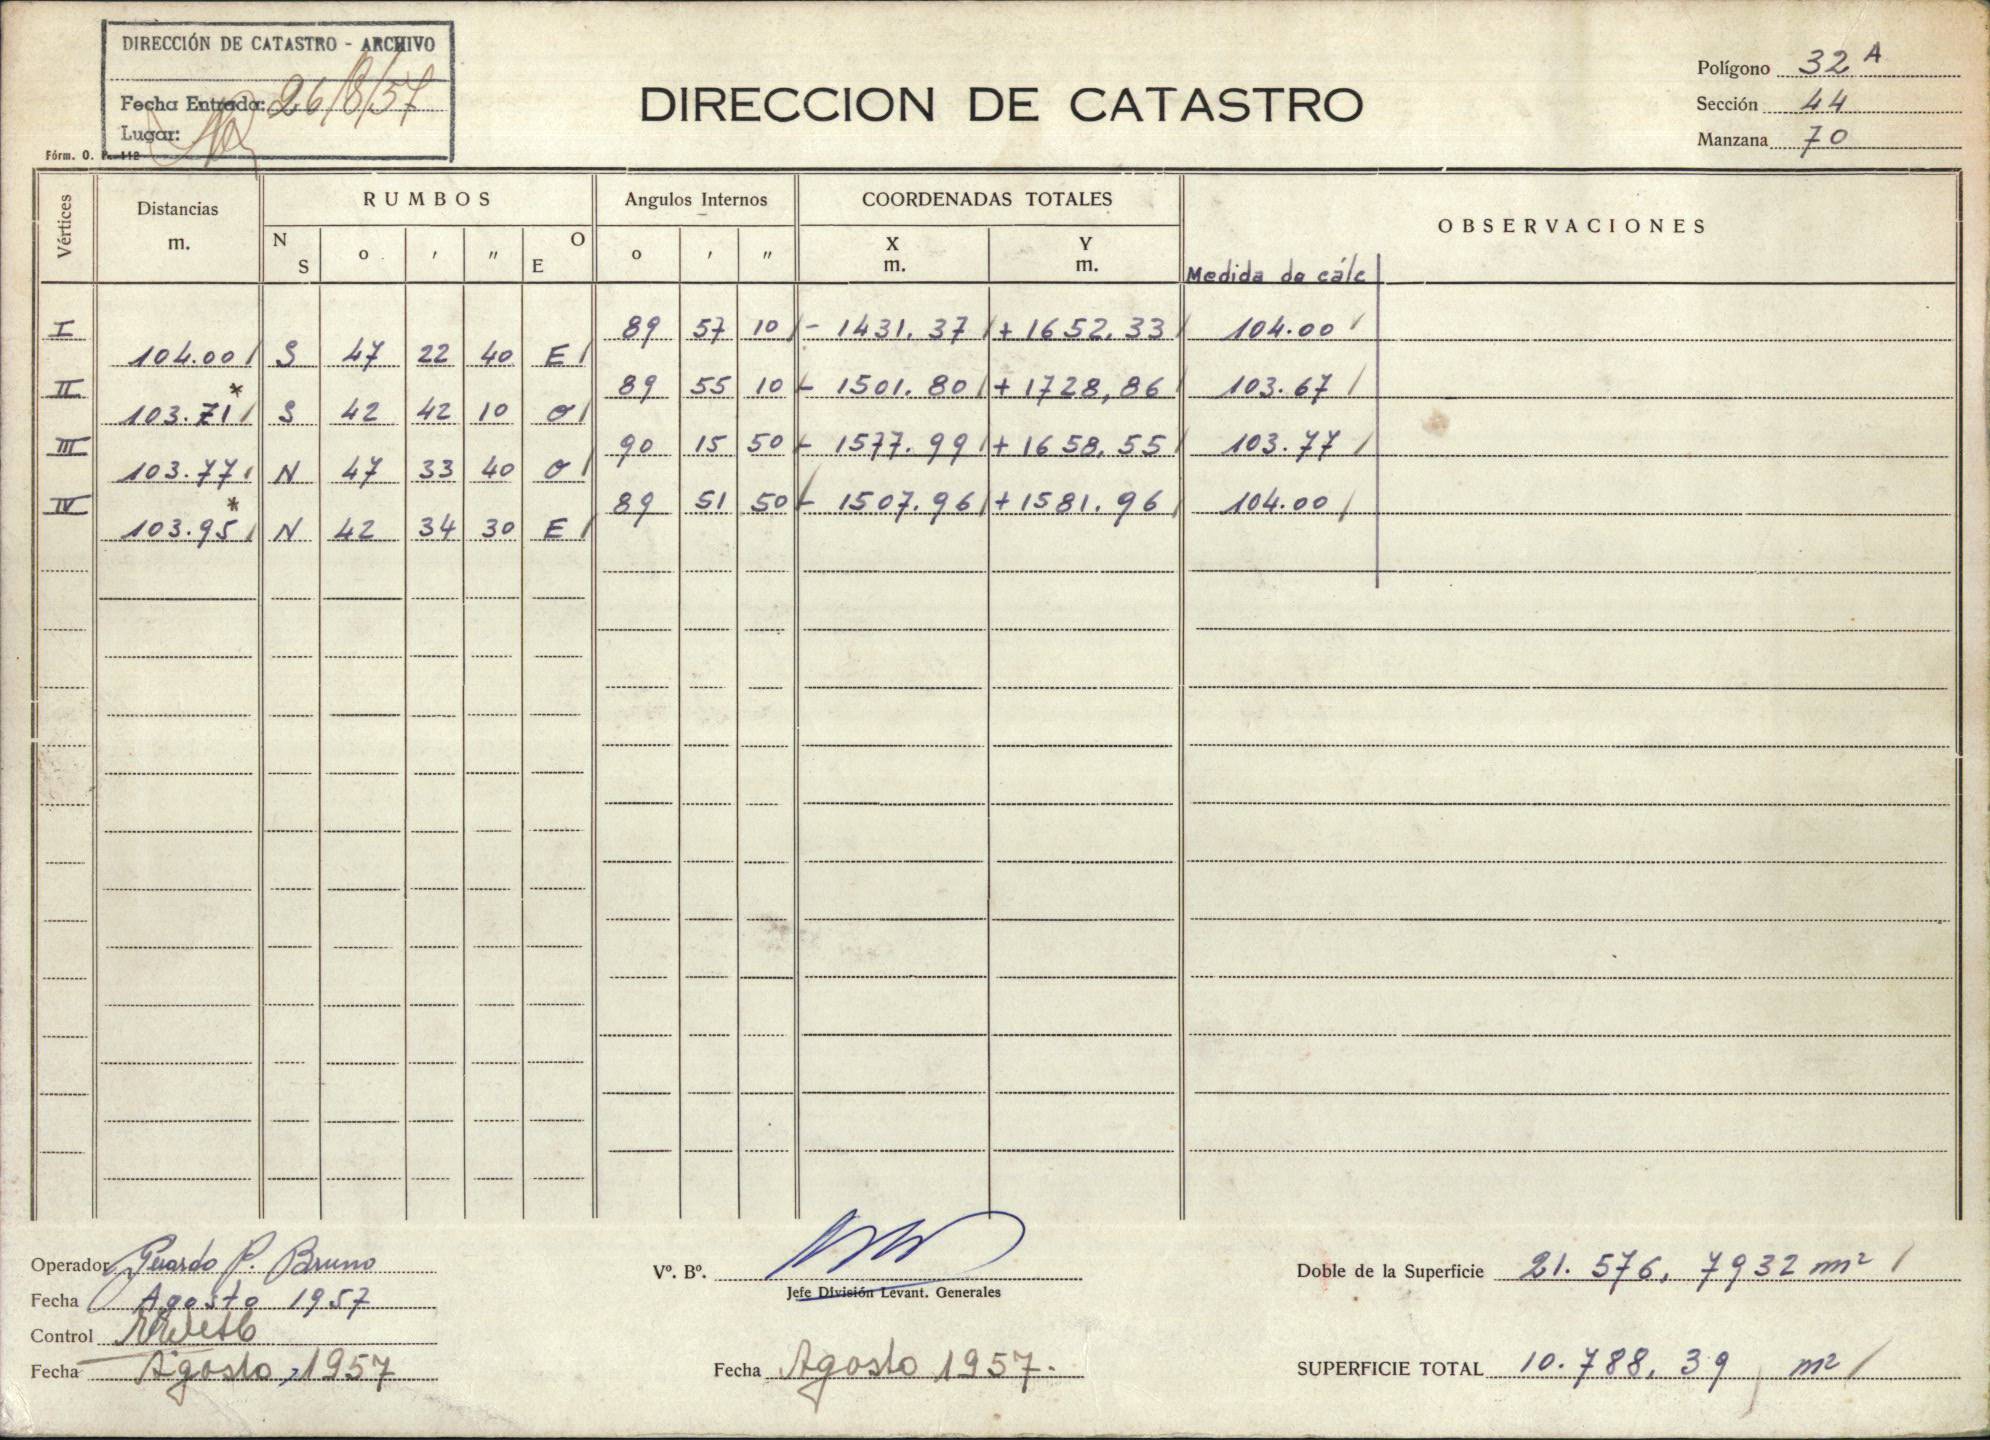 DIRECCIÓN DE CATASTRO - ARCHIVO
Fecha Entrada: 26/8/57
Lugar:
Fórm. O. P. 112
DIRECCION DE CATASTRO
Polígono 32 A
Sección 44
Manzana 70
Vértices Distancias m. RUMBOS N S o ' " O E Angulos Internos o ' " COORDENADAS TOTALES X m. Y m. OBSERVACIONES
Medida de cálc
I 89 57 10 - 1431.37 + 1652.33 104.00
104.00 S 47 22 40 E
II 89 55 10 - 1501.80 + 1728,86 103.67
103.71 * S 42 42 10 O
III 90 15 50 - 1577.99 + 1658.55 103.77
103.77 N 47 33 40 O
IV 89 51 50 - 1507.96 + 1581.96 104.00
103.95 * N 42 34 30 E
Operador Gerardo P. Bruno
Fecha Agosto 1957
Control
Fecha Agosto, 1957
Vº. Bº.
Jefe División Levant. Generales
Fecha Agosto 1957.
Doble de la Superficie 21.576,7932 m²
SUPERFICIE TOTAL 10.788,39 m²